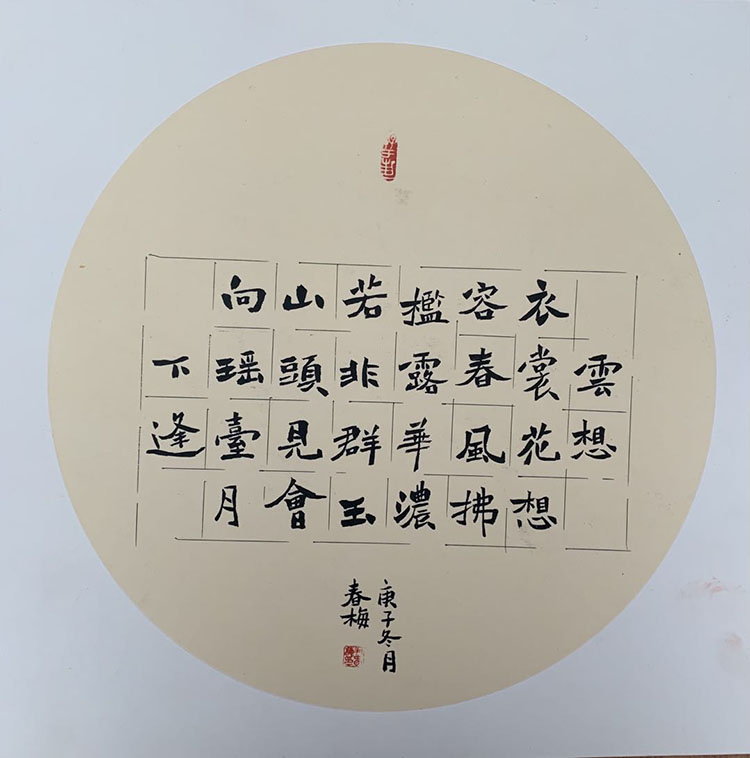 雲想
衣裳花想
容春風拂
檻露華濃
若非群玉
山頭見會
向瑶臺月
下逢
庚子冬月
春梅